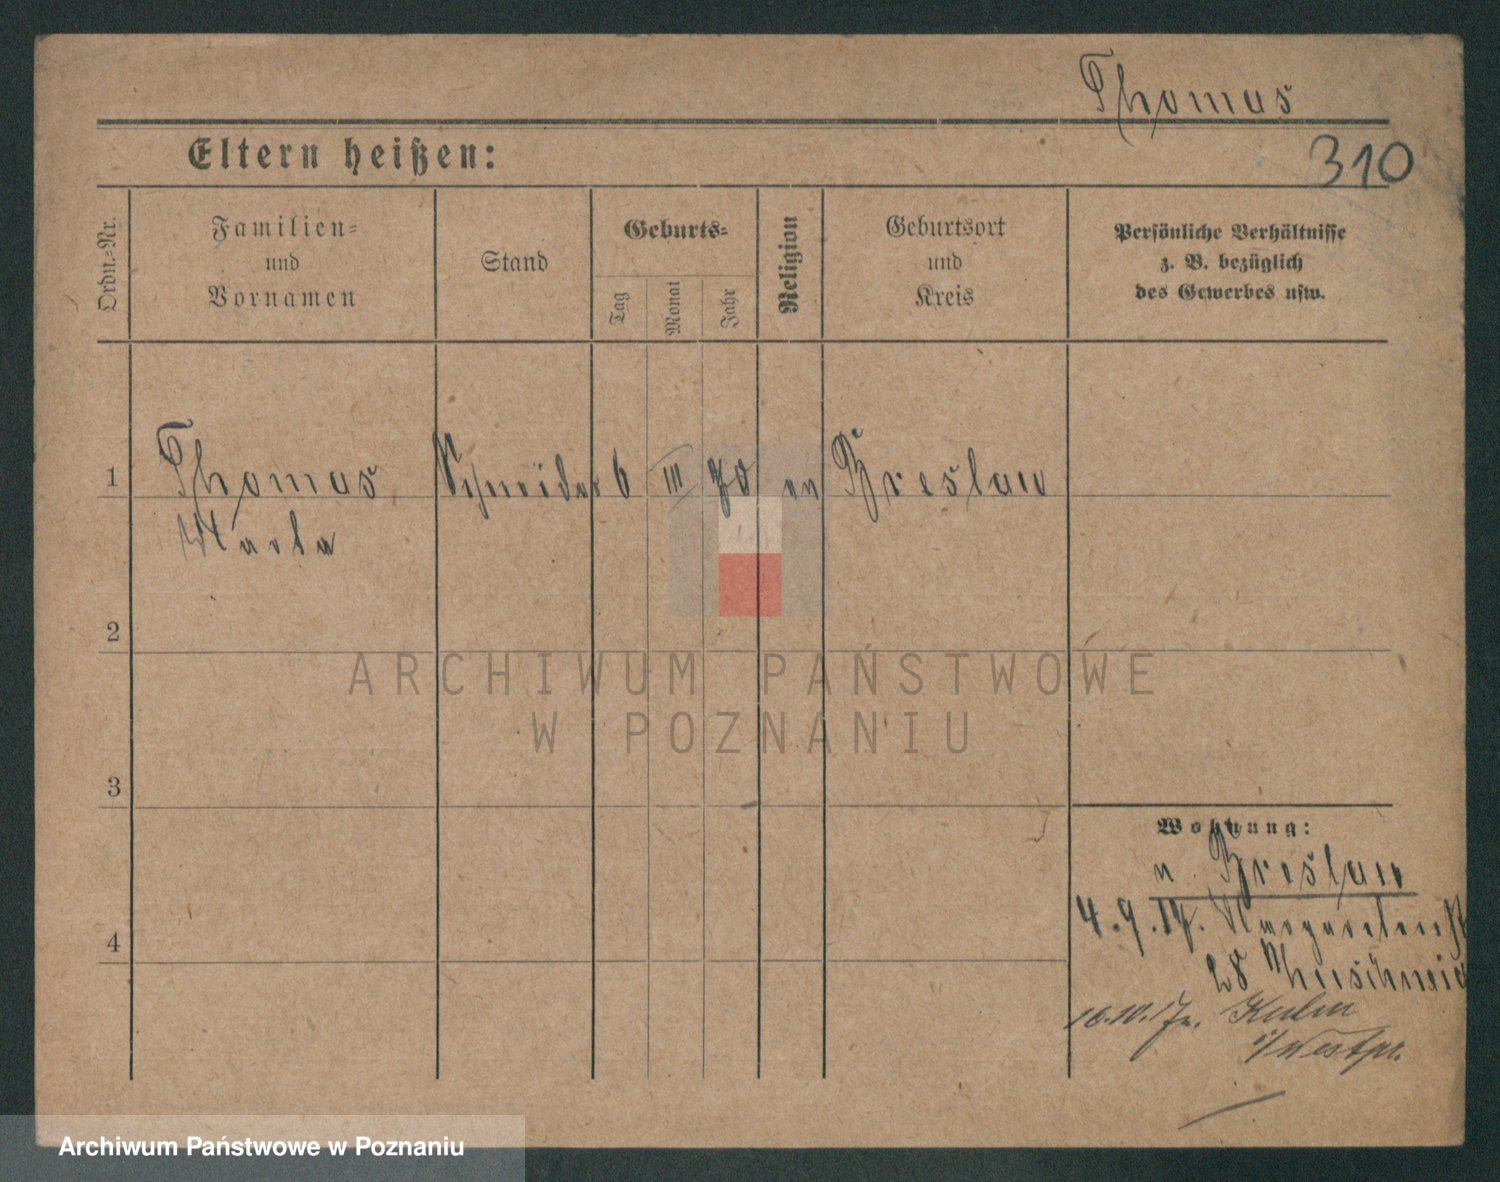 Thomas
310
Eltern heißen:
Ordn.=Nr.
Familien=
und
Vornamen
Stand
Geburts=
Tag
Monat
Jahr
Religion
Geburtsort
und
Kreis
Persönliche Verhältnisse
z. B. bezüglich
des Gewerbes usw.
1
Thomas
Schneider
6
III
70
ev
Breslau
2
3
4
Wohnung:
n. Breslau
4.9.17. Margareten
28
16.10.17 n. Kulm
i/Westpr.
ARCHIWUM PAŃSTWOWE
W POZNANIU
Archiwum Państwowe w Poznaniu